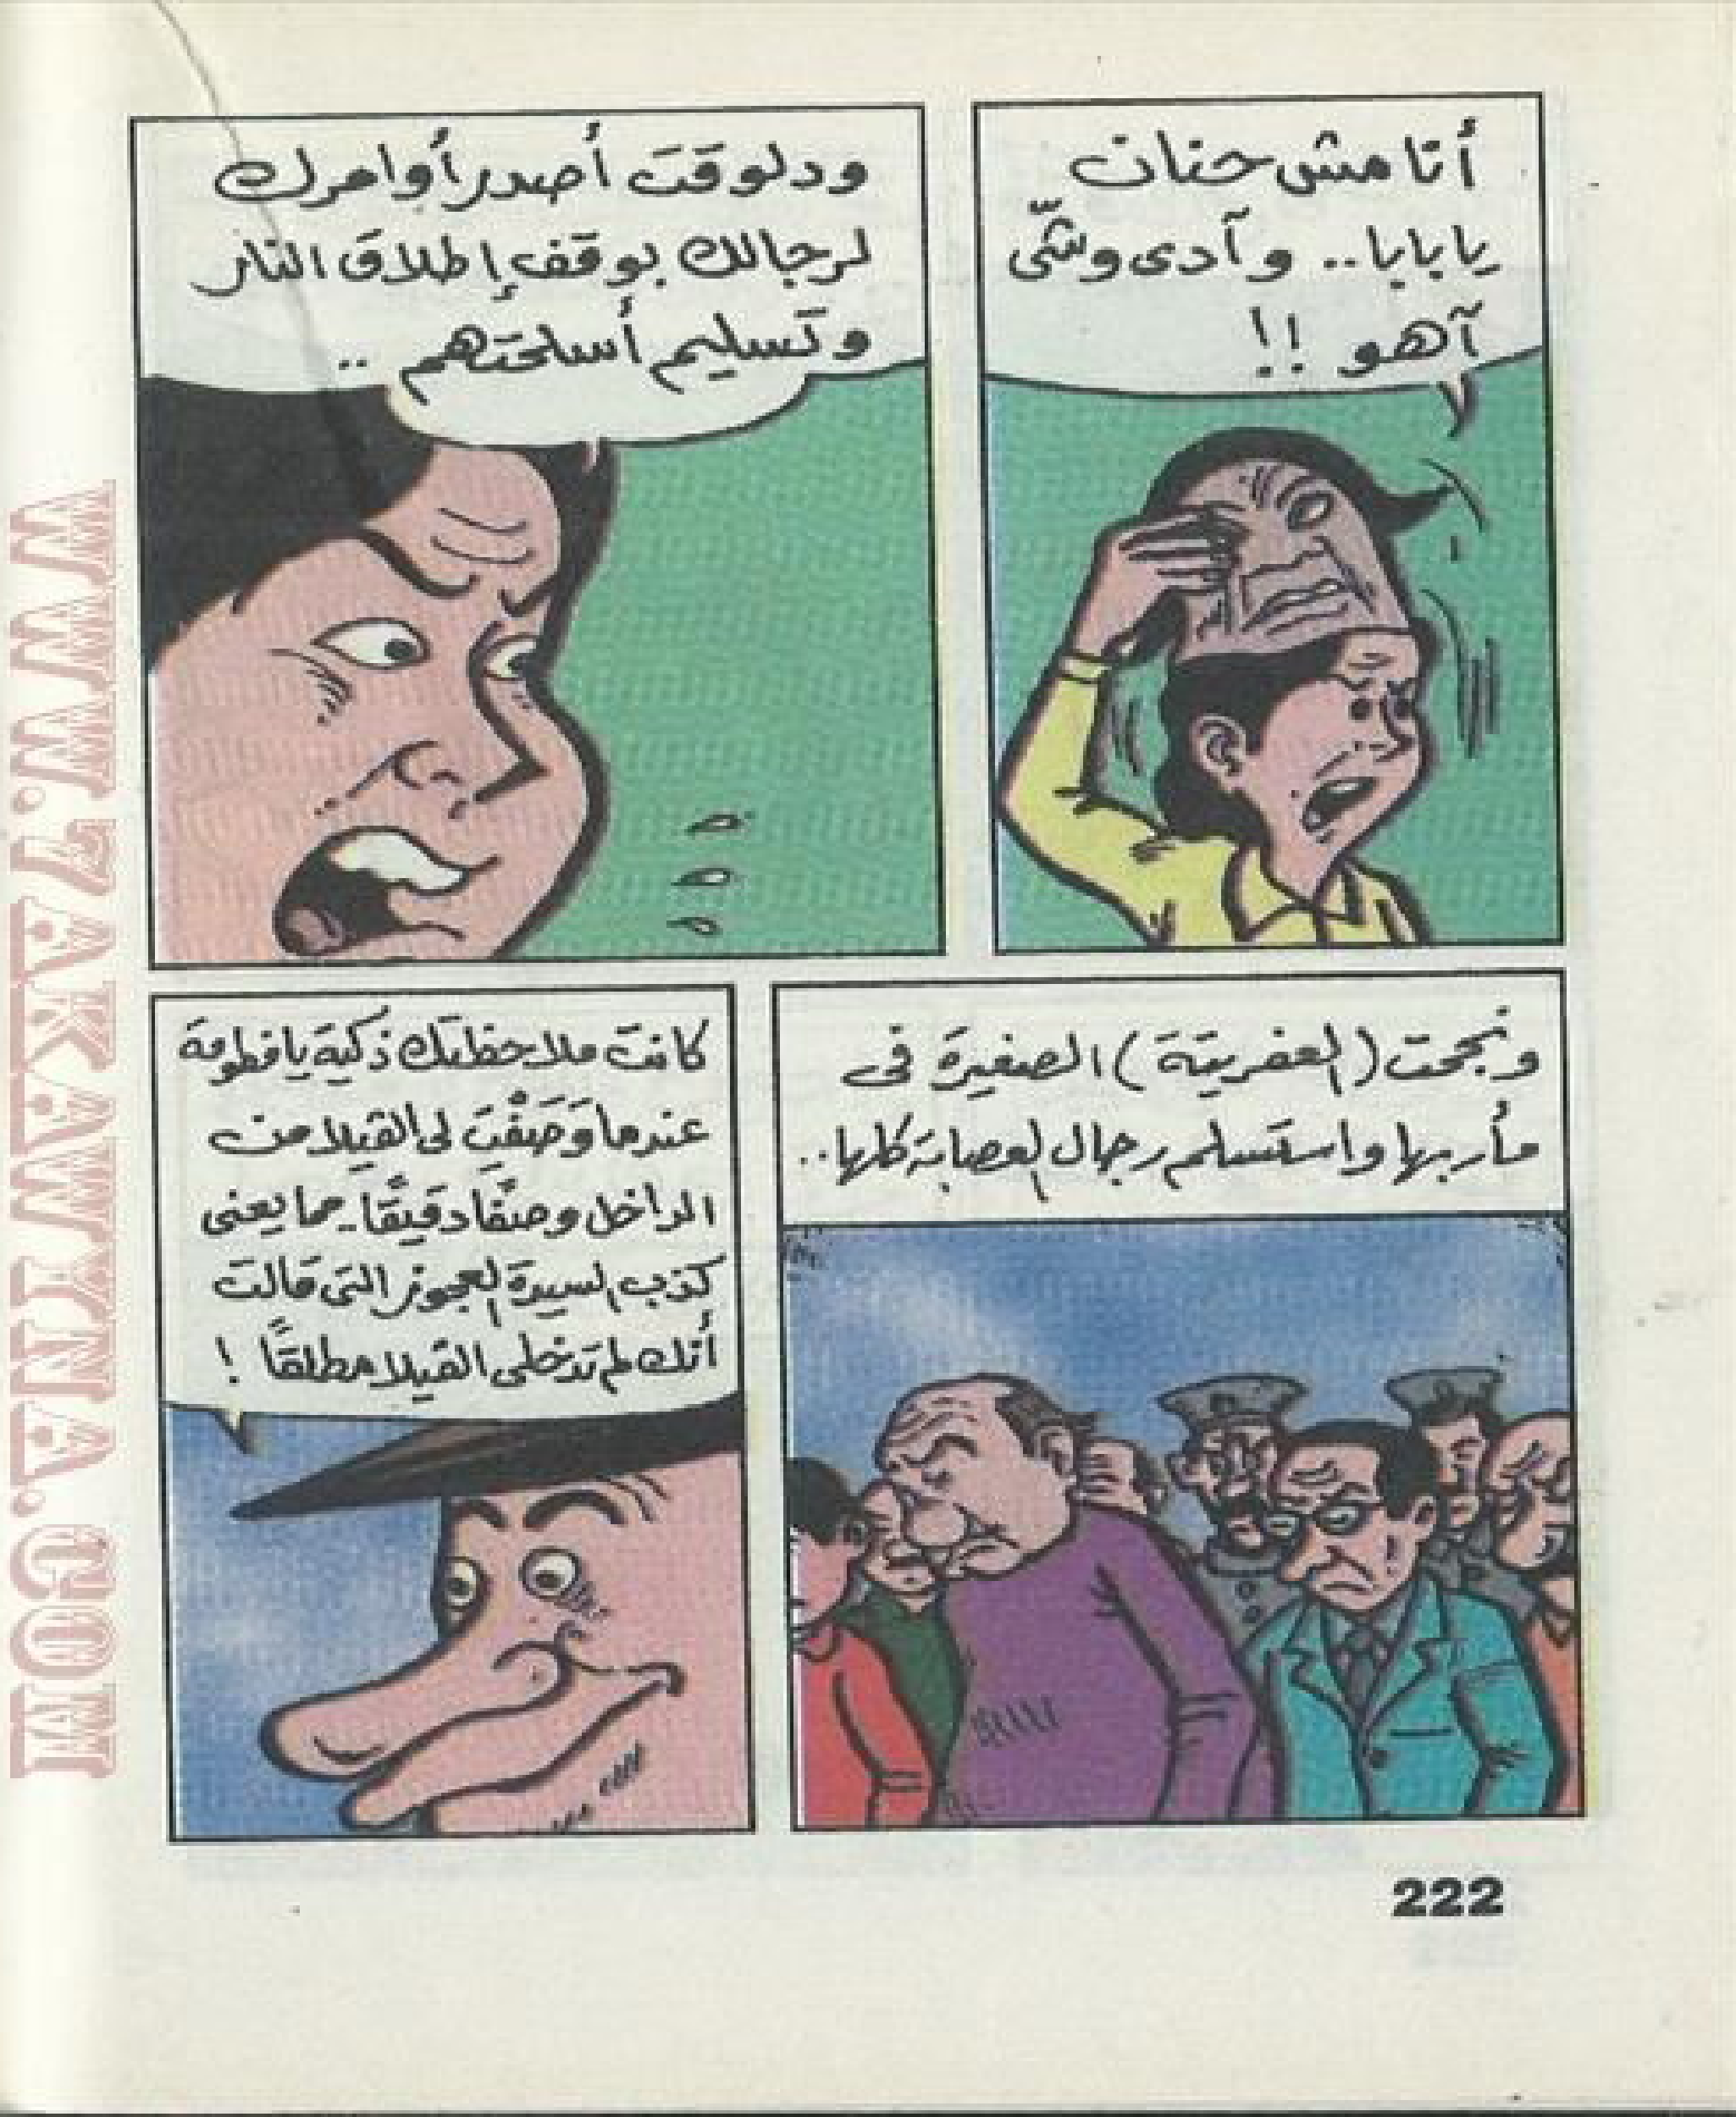 أنا مش حنان
يا بابا.. وآدى وشّى
آهو !!
ودلوقت أصدر أوامرك
لرجالك بوقف إطلاق النار
وتسليم أسلحتهم ..
ونجحت (العفريتة) الصغيرة فى
مأربها واستسلم رجال العصابة كلها..
كانت ملاحظتك ذكية يا فطومة
عندما وَصَفْتِ لى الڤيلا من
الداخل وصفًا دقيقًا - مما يعنى
كذب السيدة العجوز التى قالت
أنك لم تدخلى الڤيلا مطلقًا !
222
WWW.7AKAWITNA.COM